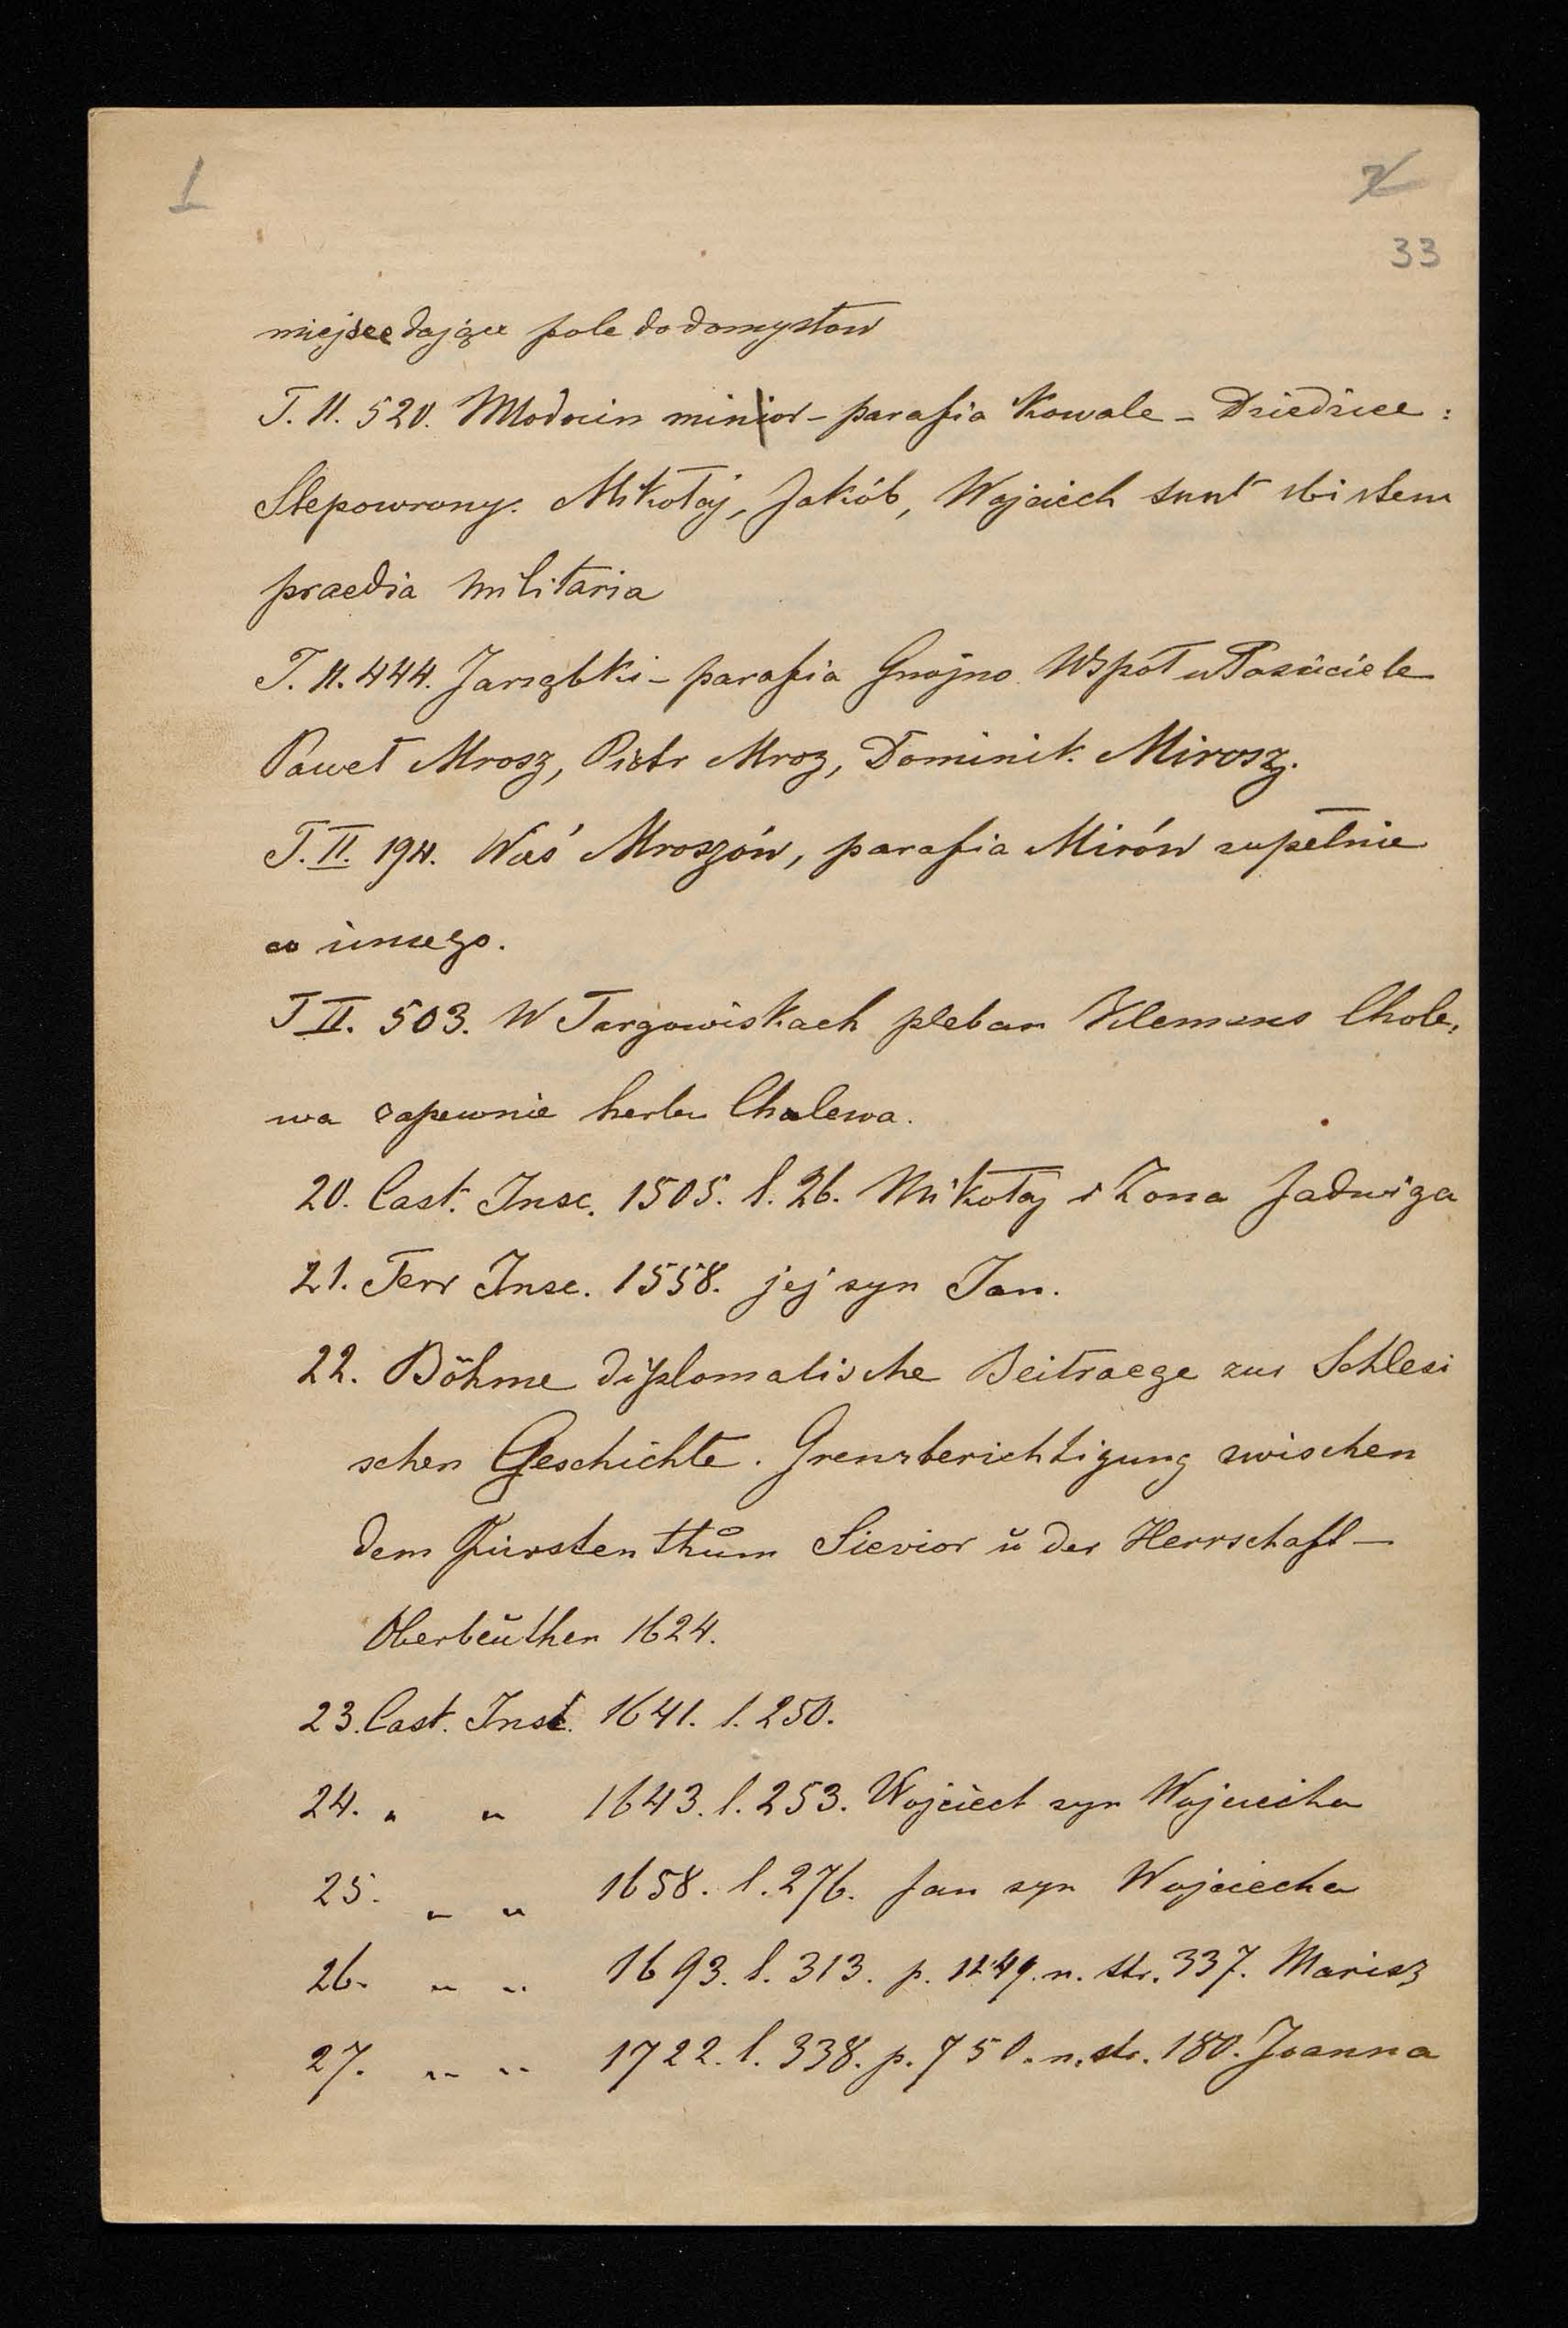 1
2
33
miejsce dające pole do domysłow
T. II. 520. Młodocin minior - parafia Kowale - Dziedzice :
Slepowrony. Mikołaj, Jakób, Wojciech sunt ibidem
praedia militaria
T. II. 444. Jarząbki - parafia Gnojno Współwłaściciele
Paweł Mrosz, Piotr Mroz, Dominik Mirosz.
T. II. 194. Wieś Mroszów, parafia Mirów zupełnie
co innego.
T II. 503. W Targowiskach pleban Klemens Chole,
wa zapewnie herbu Cholewa.
20. Cast. Insc. 1505. l. 26. Mikołaj i Zona Jadwiga
21. Terr Insc. 1558. jej syn Jan.
22. Böhme diplomatische Beitraege zur Schlesi
schen Geschichte. Grenzberichtigung zwischen
dem Fürstenthům Sievior ŭ der Herrschaft -
Oberbeŭthen 1624.
23. Cast. Insc. 1641. l. 250.
24. " " 1643. l. 253. Wojciech syn Wojciecha
25. " " 1658. l. 276. Jan syn Wojciecha
26. " " 1693. l. 313. p. 1249. n. str. 337. Marisz
27. " " 1722. l. 338. p. 750. n. str. 180. Joanna